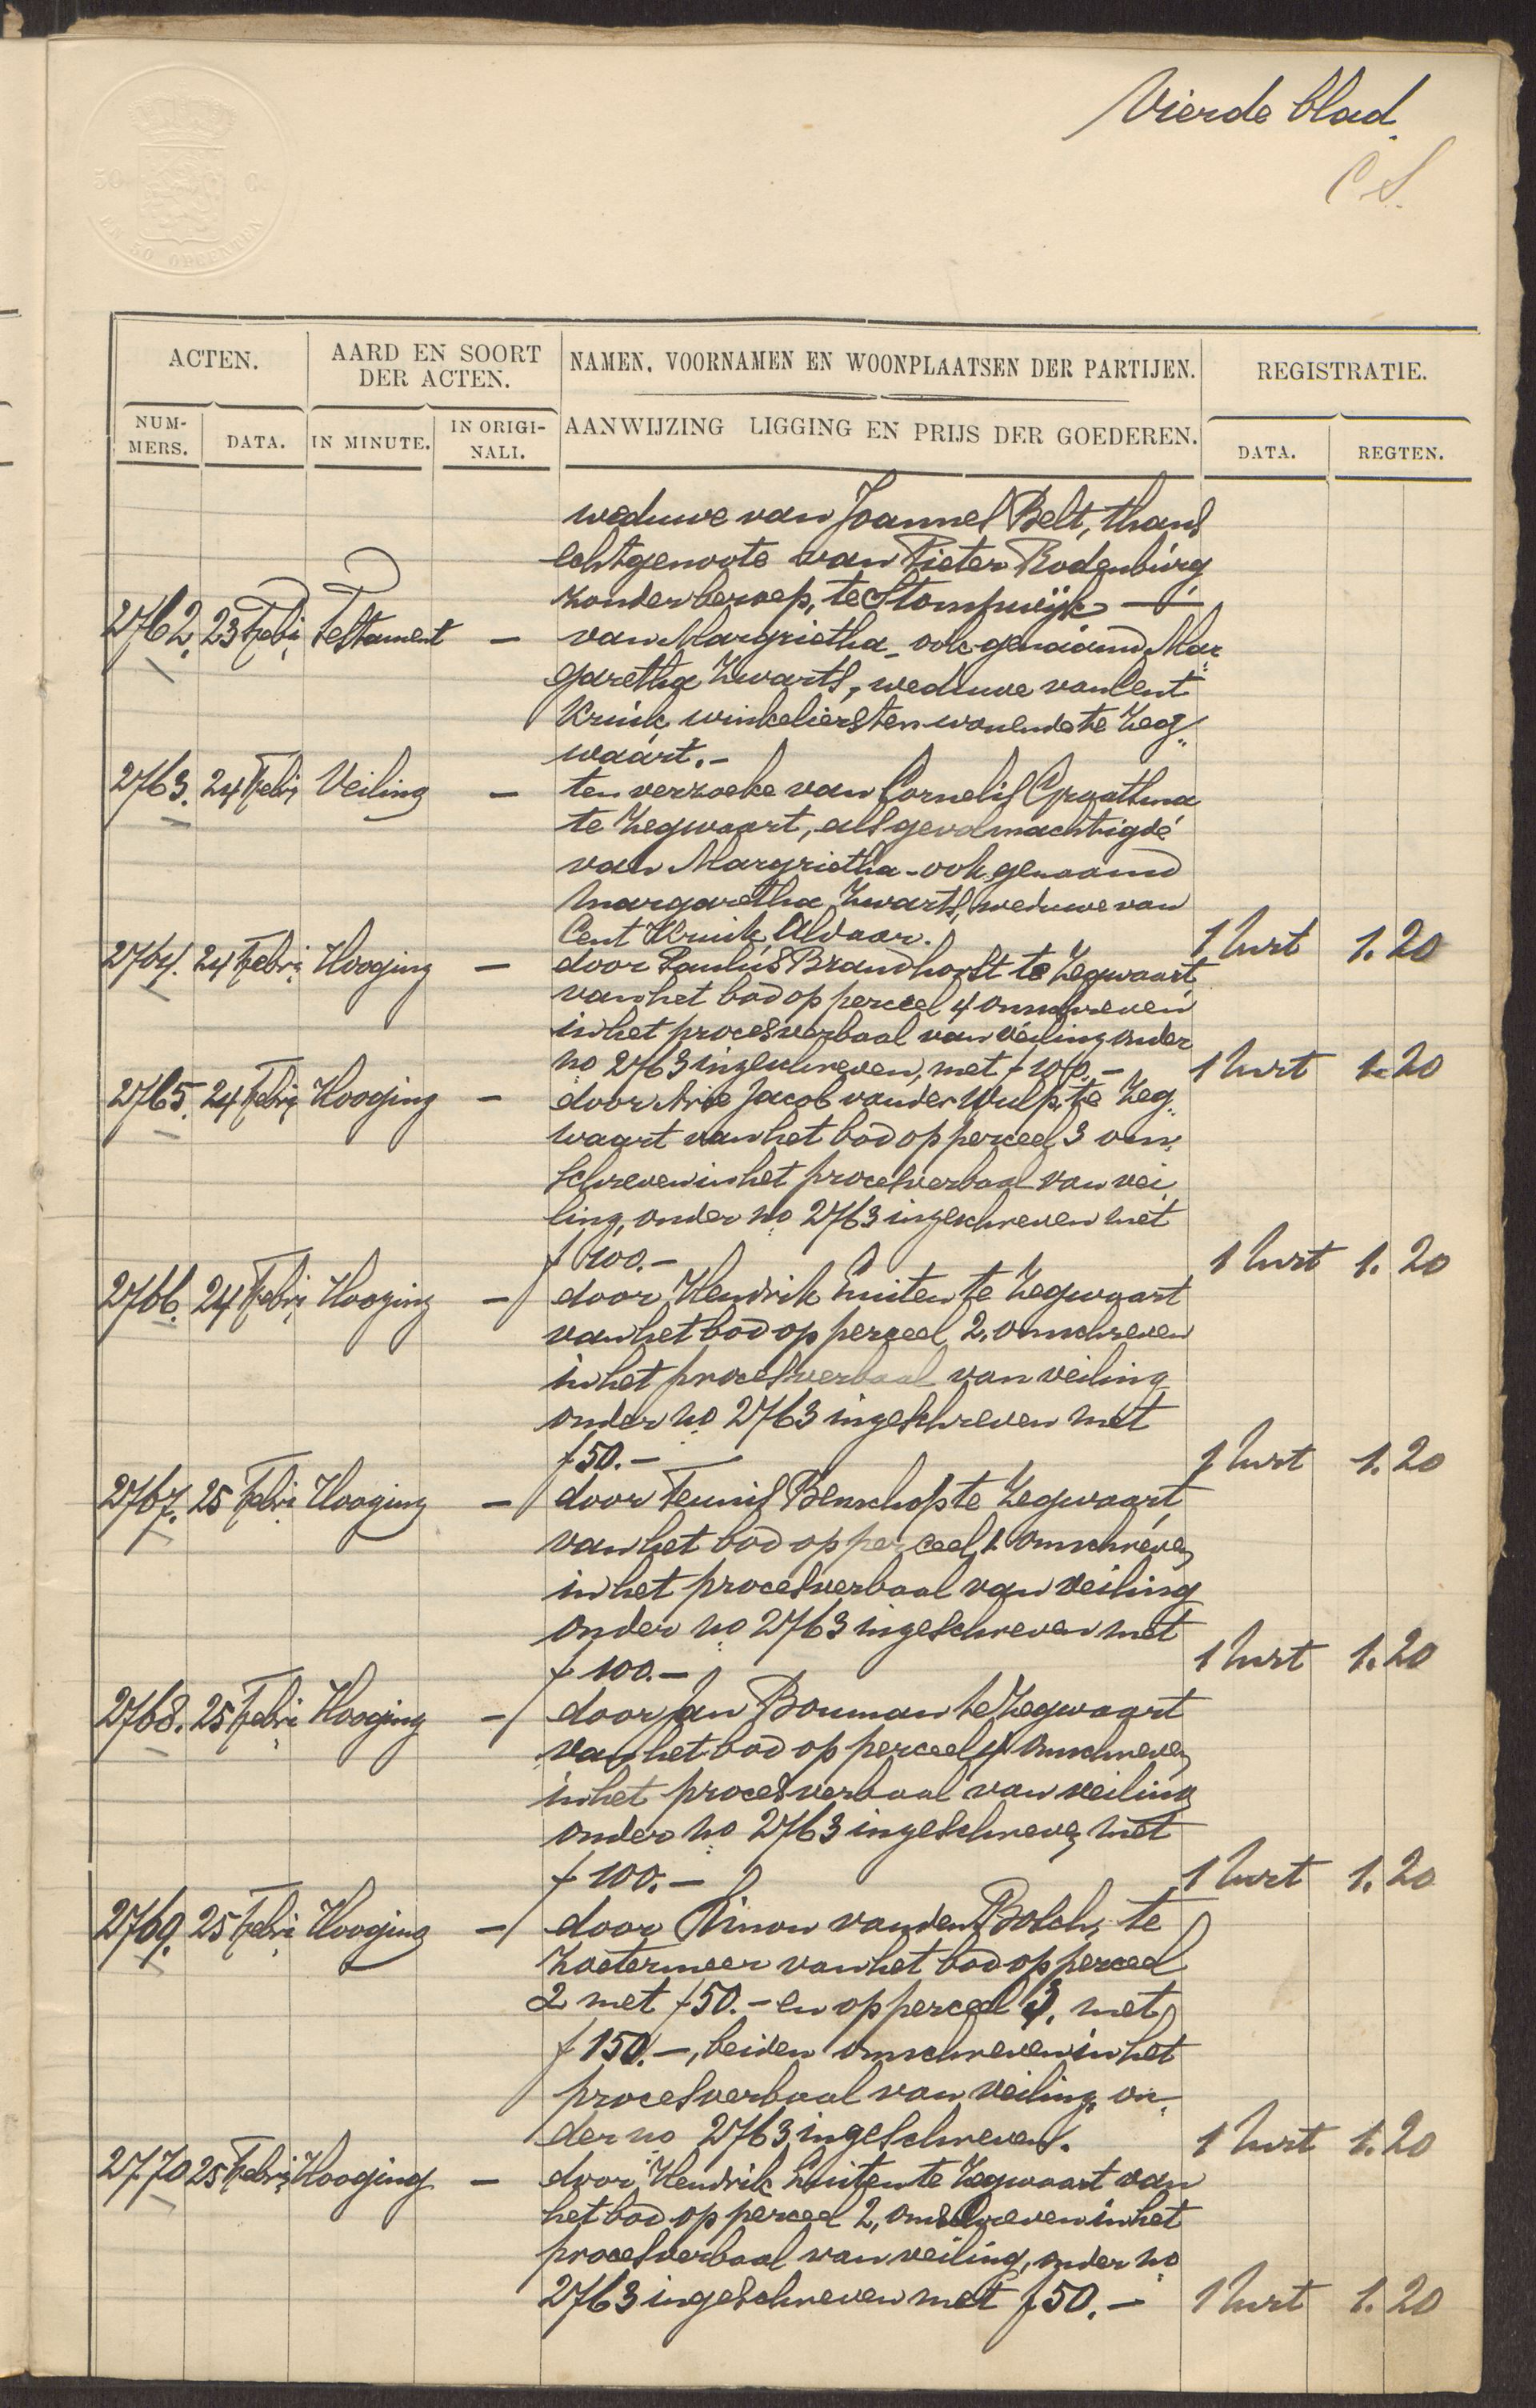 Vierde blad.
C.S.
50 C.
EN 50 OPCENTEN
ACTEN.
AARD EN SOORT DER ACTEN.
NAMEN, VOORNAMEN EN WOONPLAATSEN DER PARTIJEN.
REGISTRATIE.
NUM-MERS.
DATA.
IN MINUTE.
IN ORIGI-NALI.
AANWIJZING LIGGING EN PRIJS DER GOEDEREN.
DATA.
REGTEN.
weduwe van Joannes Belt, thans
echtgenoote van Pieter Rodenburg
zonder beroep, te Stompwijk —
2762. 23 Febr. Testament — van Margrietha - ook genaamd Mar
garetha Zwarts, weduwe van Cent
Kruik, winkelierster wonende te Zeg„
waart. -
2763. 24 Febr. Veiling — ten verzoeke van Cornelis Graathma
te Zegwaart, als gevolmachtigde
van Margrietha - ook genaamd
Margaretha Zwarts, weduwe van
Cent Kruik, Aldaar. 1 Mrt 1.20
2764. 24 Febr. Hooging — door Paulus Brandhorst te Zegwaart
van het bod op perceel 4 omschreven
in het procesverbaal van veiling onder
no 2763 ingeschreven, met f 100.- 1 Mrt 1.20
2765. 24 Febr. Hooging — door Arie Jacob van der Wulp, te Zeg„
waart van het bod op perceel 3 om„
schreven in het procesverbaal van vei
ling, onder no 2763 ingeschreven met
f 100.- 1 Mrt 1.20
2766. 24 Febr. Hooging — door Hendrik Luiten te Zegwaart
van het bod op perceel 2, omschreven
in het procesverbaal van veiling
onder no 2763 ingeschreven met
f 50.- 1 Mrt 1.20
2767. 25 Febr. Hooging — door Teunis Benschop te Zegwaart
van het bod op perceel 1 omschreven
in het procesverbaal van veiling
onder no 2763 ingeschreven met
f 100.- 1 Mrt 1.20
2768. 25 Febr. Hooging — door Jan Bouman te Zegwaart
van het bod op perceel 4 omschreven
in het procesverbaal van veiling
onder no 2763 ingeschreven met
f 100.- 1 Mrt 1.20
2769. 25 Febr. Hooging — door Simon van den Bosch, te
Zoetermeer van het bod op perceel
2 met f 50.- en op perceel 3, met
f 150.-, beiden omschreven in het
procesverbaal van veiling, on„
der no 2763 ingeschreven. 1 Mrt 1.20
2770 25 Febr. Hooging — door Hendrik Luiten te Zegwaart van
het bod op perceel 2, omschreven in het
procesverbaal van veiling, onder no
2763 ingeschreven met f 50.- 1 Mrt 1.20